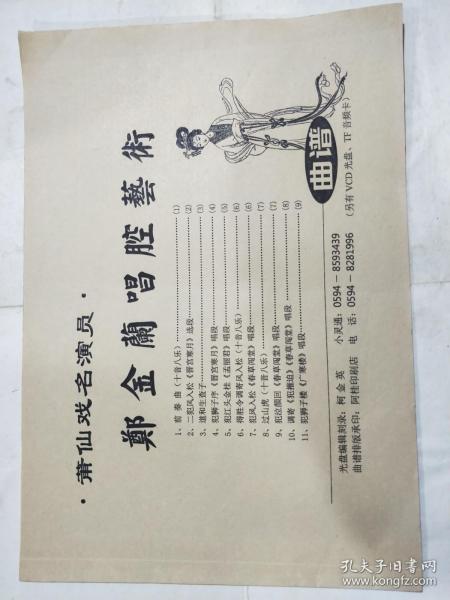 ·莆仙戏名演员·
鄭金蘭唱腔藝術
曲谱
(另有VCD光盘、TF音频卡)
1、前奏曲(十音八乐)……(1)
2、二犯风入松《晋宫寒月》选段……(2)
3、道和生查子……(3)
4、犯狮子序《晋宫寒月》唱段……(4)
5、犯江头金桂《孟姐君》唱段……(5)
6、得胜令调寄风入松(十音八乐)……(6)
7、犯风入松《春草闯堂》唱段……(6)
8、过山虎(十音八乐)……(7)
9、犯泣颜回《春草闯堂》唱段……(7)
10、调寄《犯推迫》《春草闯堂》唱段……(8)
11、犯狮子楼《广寒楼》唱段……(9)
光盘编辑刻录:柯金英 小灵通:0594-8593439
曲谱排版承印:阿桂印刷店 电话:0594-8281996
孔夫子旧书网
www.kongfz.com